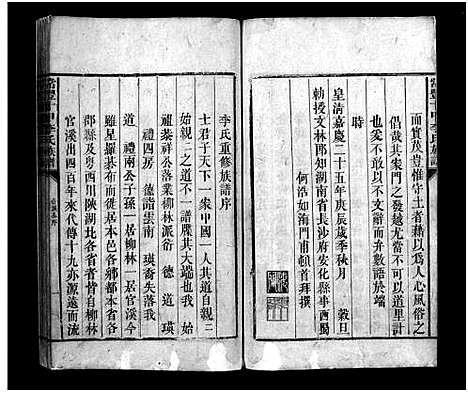 常豐十甲李氏族譜
而實茂豈惟守土者藉以爲人心風俗之
倡哉其家門之發越尤當不可以道里計
也余故不敢以不文辭而弁數語於端
時
皇清嘉慶二十五年庚辰歲季秋月 穀旦
勅授文林郎知湖南省長沙府安化縣事西蜀
何浩如海門甫頓首拜撰
李氏重修族譜序
士君子天下一家中國一人其道自親親
始親親之道不一而譜其大端也我 始
祖棻祥公落業柳林派衍 德 道 瑛
禮四房 德詣雲南 瑛裔失落我
道 禮兩公子孫一居柳林一居官溪今
雖星羅碁布而徙居本邑各鄉都本省各
郡縣及粤西川陝湖北各省者皆自柳林
官溪出四百年來代傳十九亦源遠而流
常豐十甲李氏族譜